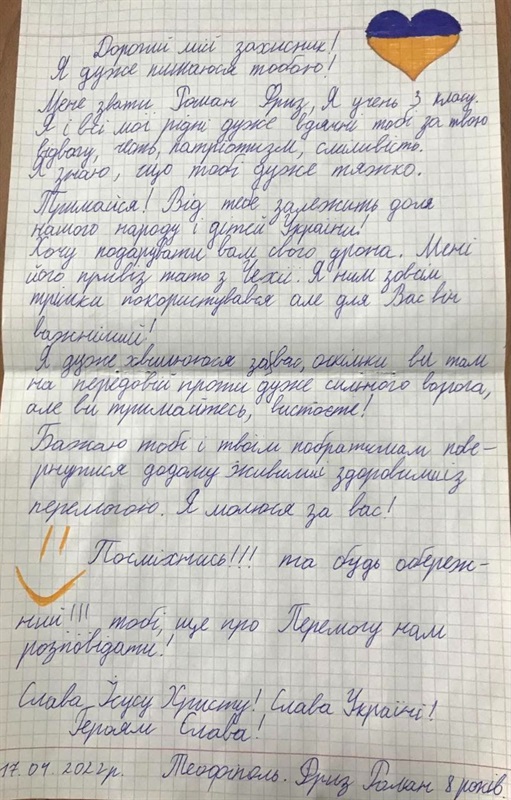 Дорогий мій захисник!
Я дуже пишаюся тобою!
Мене звати Роман Фриз, Я учень 3 класу.
Я і всі мої рідні дуже вдячні тобі за твою
відвагу, честь, патріотизм, сміливість.
Я знаю, що тобі дуже тяжко.
Тримайся! Від тебе залежить доля
нашого народу і дітей України!
Хочу подарувати вам свого дрона. Мені
його привіз тато з Чехії. Я ним зовсім
трішки покористувався але для Вас він
важніший!
Я дуже хвилююся за вас, оскільки ви там
на передовій проти дуже сильного ворога,
але ви тримайтесь, вистоєте!
Бажаю тобі і твоїм побратимам пове-
рнутися додому живими здоровими із
перемогою. Я молюся за вас!
Посміхнись!!! та будь обереж-
ний!!! тобі, ще про Перемогу нам
розповідати!
Слава Ісусу Христу! Слава Україні!
Героям Слава!
17.04.2022р. Теофіполь. Фриз Роман 8 років.